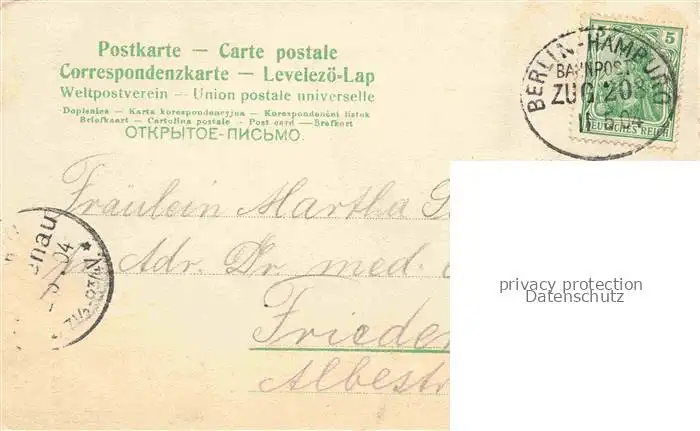 Postkarte — Carte postale
Correspondenzkarte — Levelezö-Lap
Weltpostverein — Union postale universelle
Dopisnice — Karta korespondencyjna — Korespondenčni listok
Briefkaart — Cartolina postale — Post card — Brefkort
ОТКРЫТОЕ-ПИСЬМО.
BERLIN-HAMBURG
BAHNPOST
ZUG 203
5
DEUTSCHES REICH
Fräulein Martha
Adr. Dr. med.
privacy protection
Datenschutz